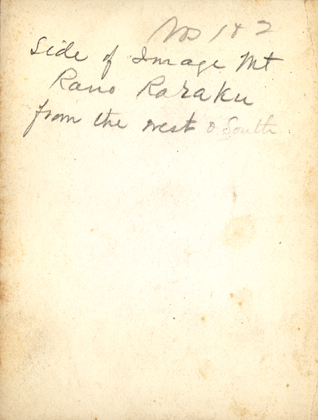 No 1 & 2
Side of Image Mt
Rano Raraku
from the west & South